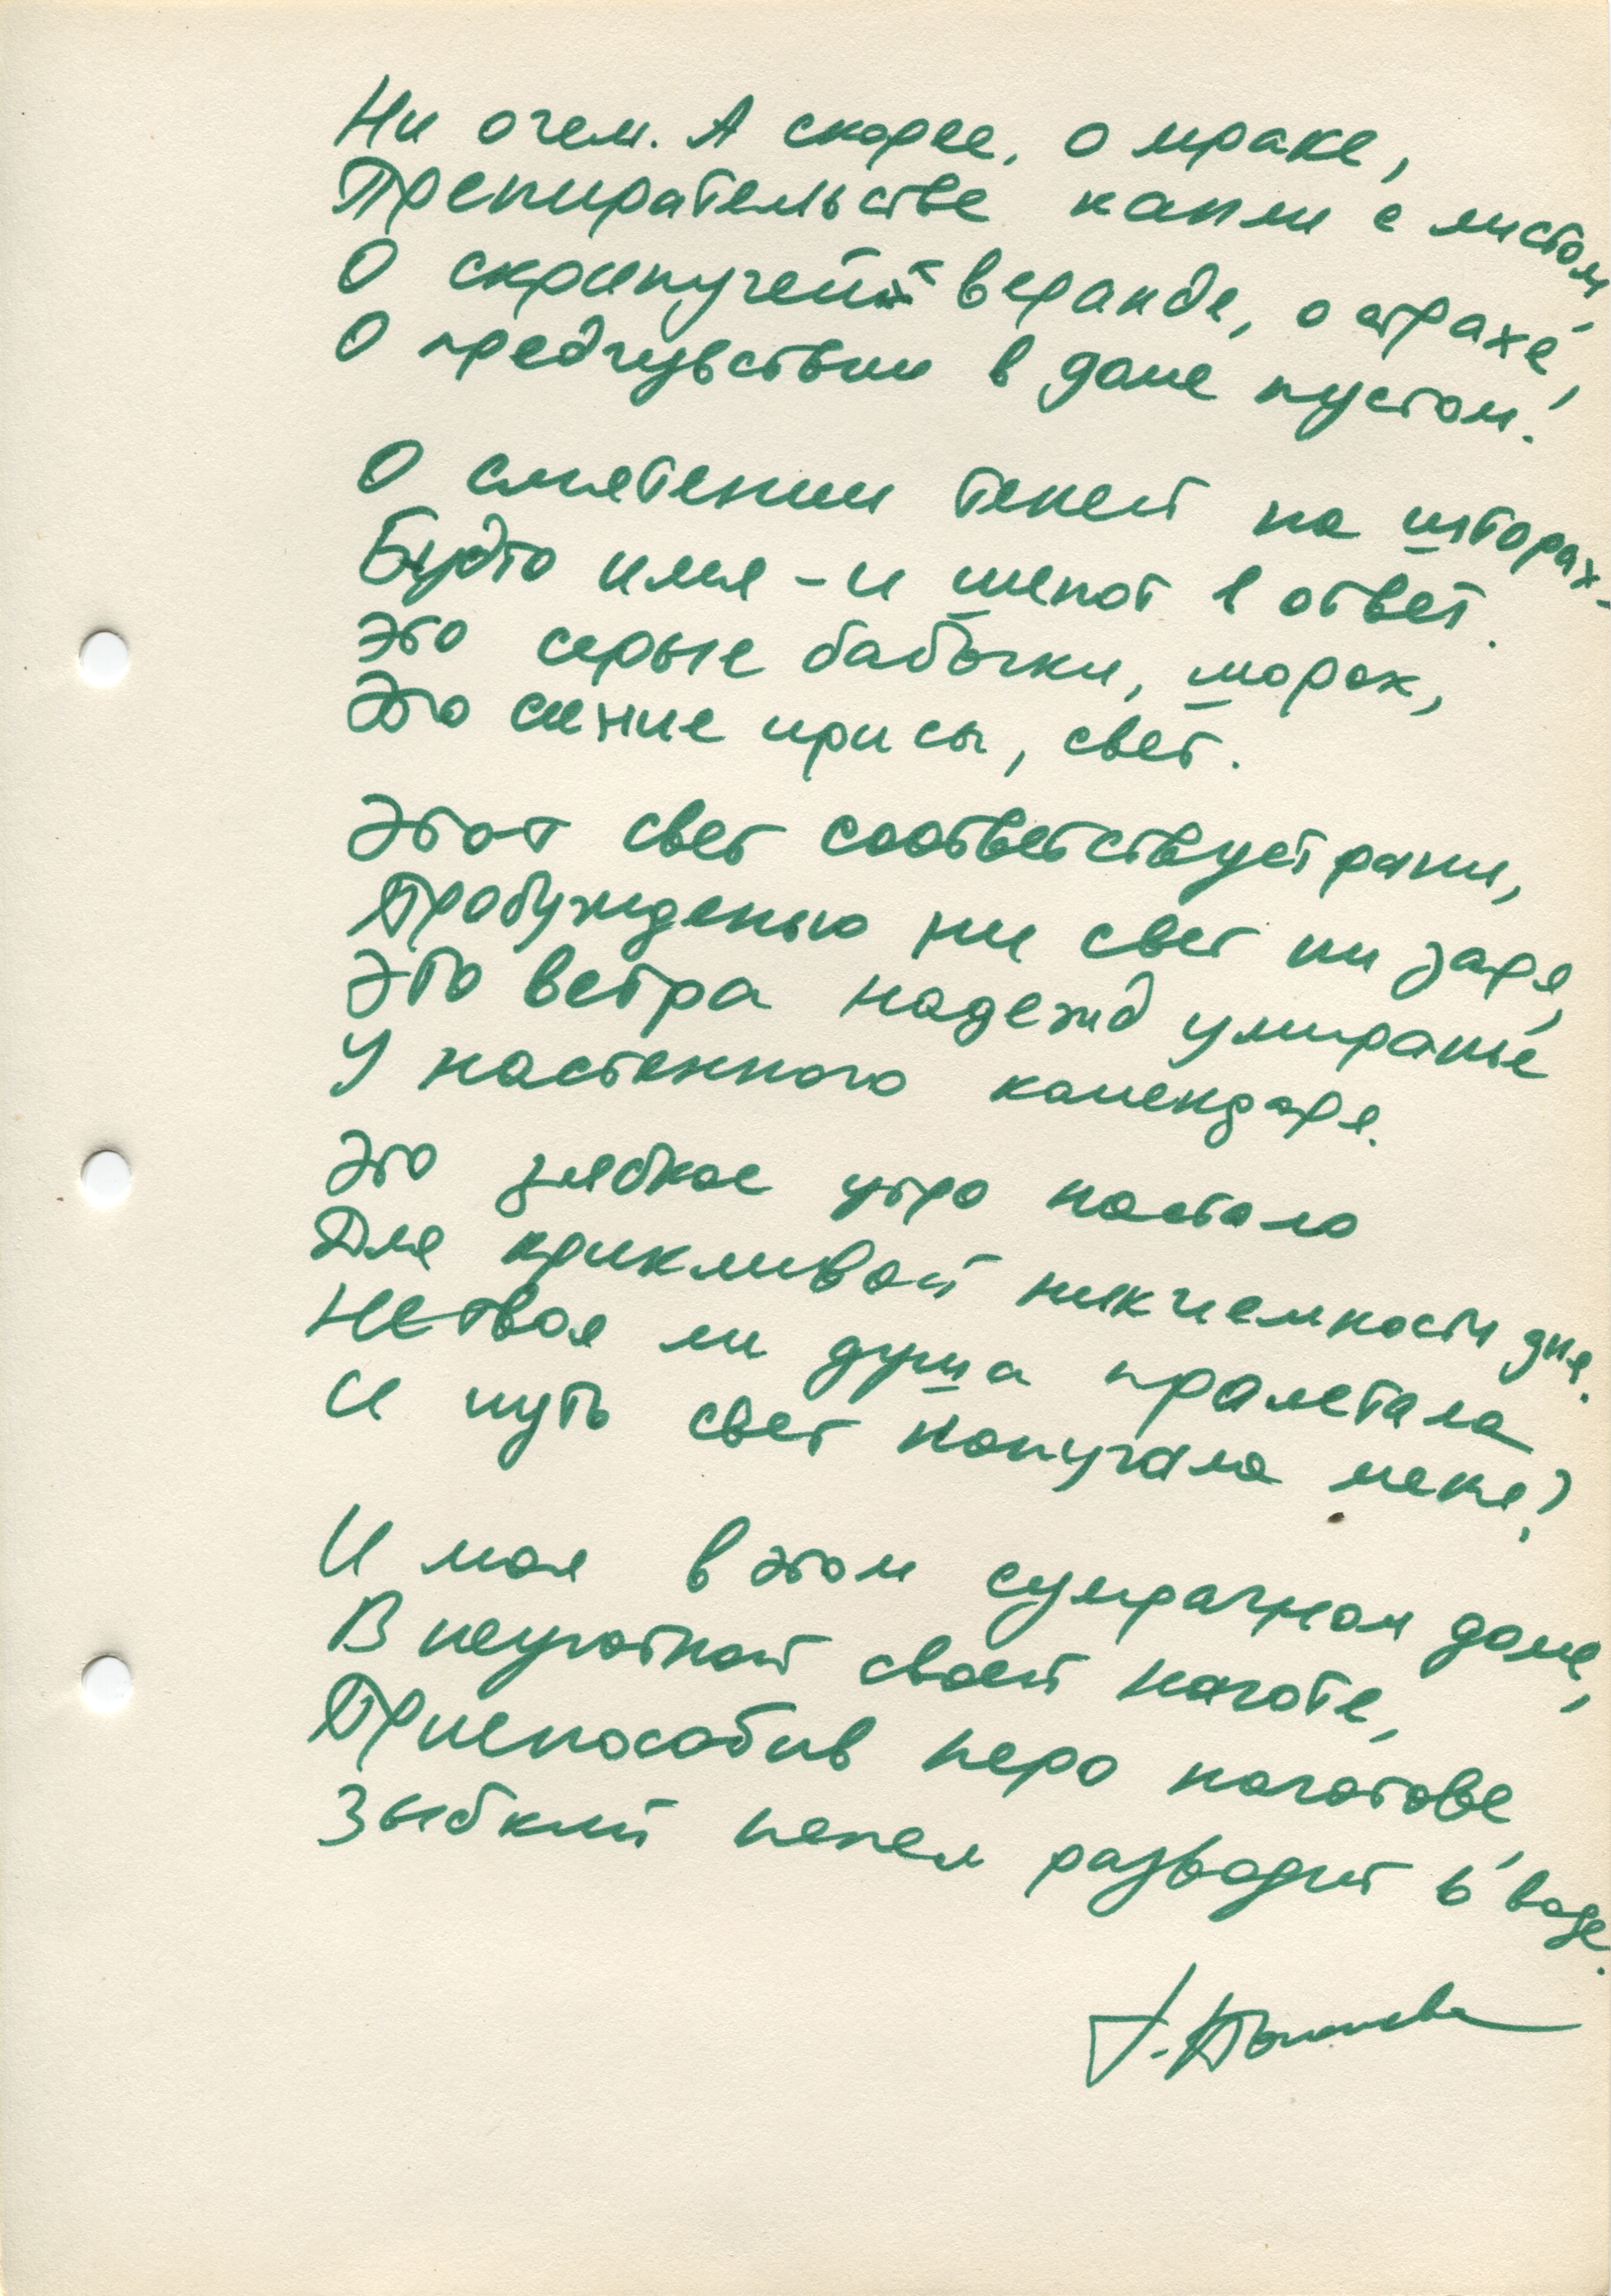 Ни о чем. А скорее, о мраке,
Препирательстве капли с листом,
О скрипучей веранде, о страхе,
О предчувствии в доме пустом.
О смятении теней на шторах –
Будто имя – и шепот в ответ.
Это серые бабочки, морок,
Это синие ирисы, свет.
Этот свет соответствует рани,
Пробужденью ни свет ни заря,
Это ветра надежд умиранье
У настенного календаря.
Это зябкое утро настало
Для крикливой никчемности дня.
Не твоя ли душа пролетала
И чуть свет напугала меня?
И моя в этом сумрачном доме,
В неуютной своей наготе,
Приспособив перо наготове
Зыбкий пепел разводит в воде.